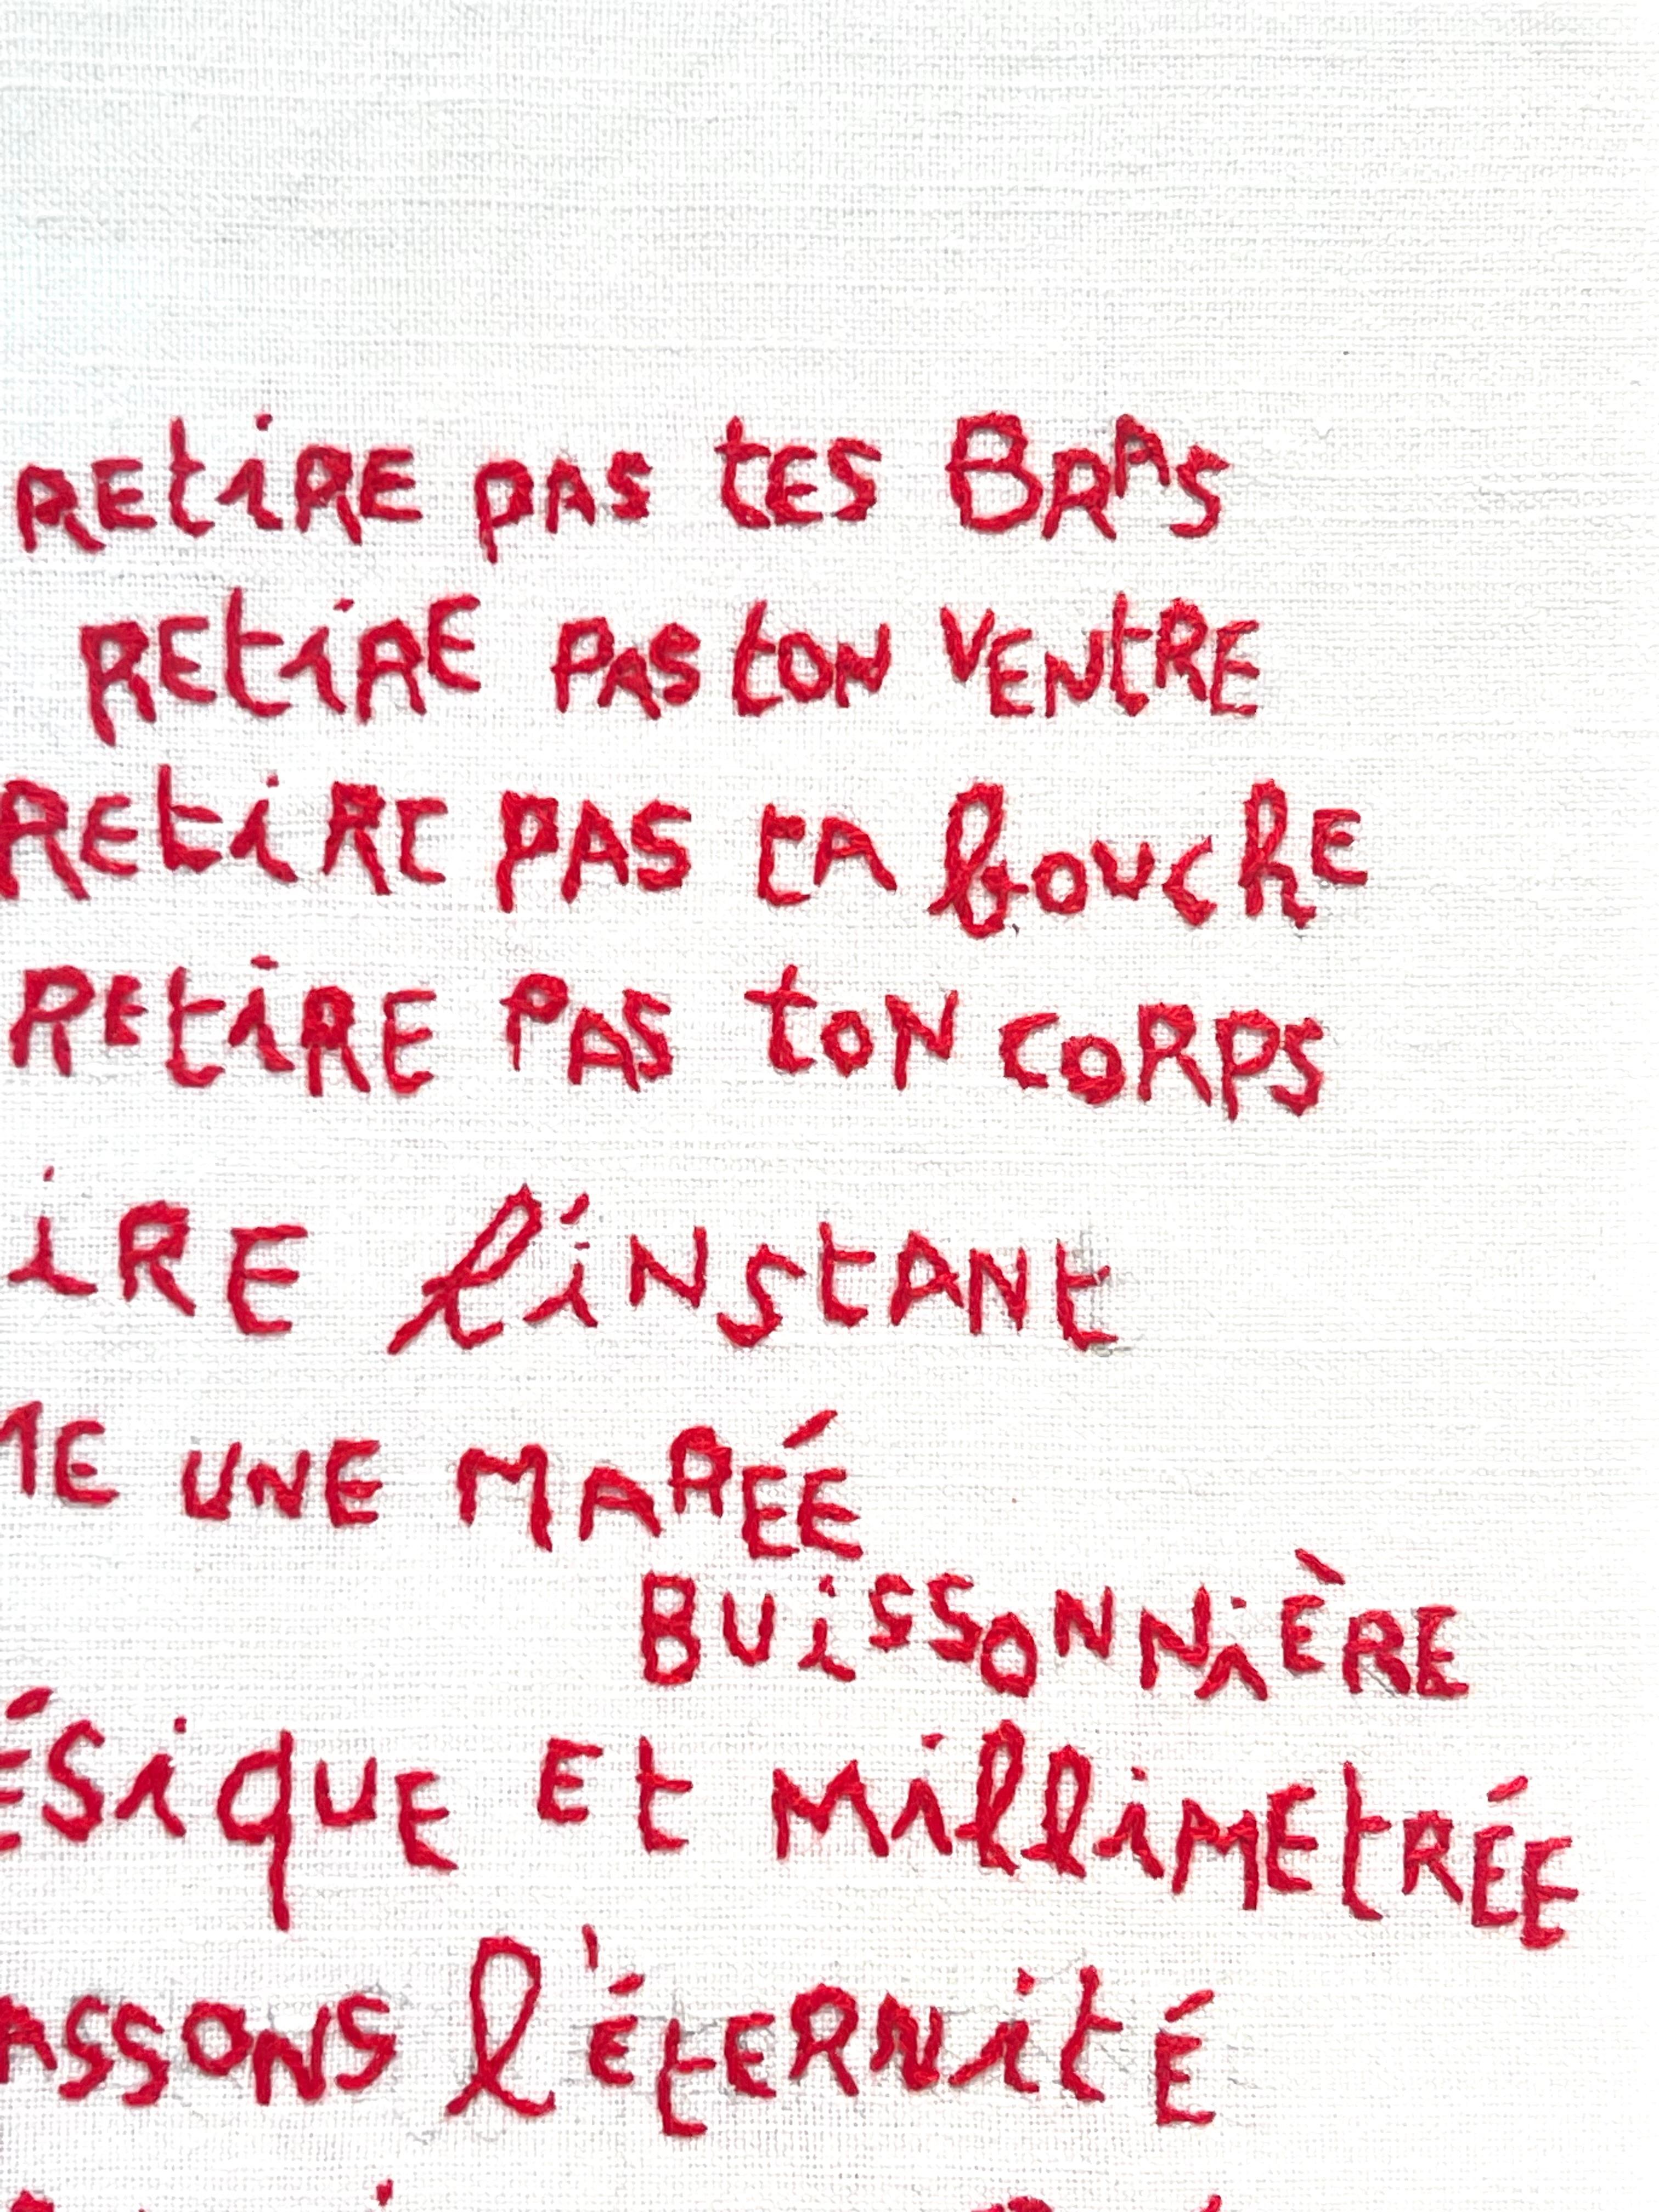 RETIRE PAS TES BRAS
RETIRE PAS TON VENTRE
RETIRE PAS TA bouchE
RETIRE PAS TON CORPS
IRE l'INSTANT
ME UNE MARÉE
BUISSONNIÈRE
ÉSIQUE ET MillIMETRÉE
ASSONS l'ÉTERNITÉ